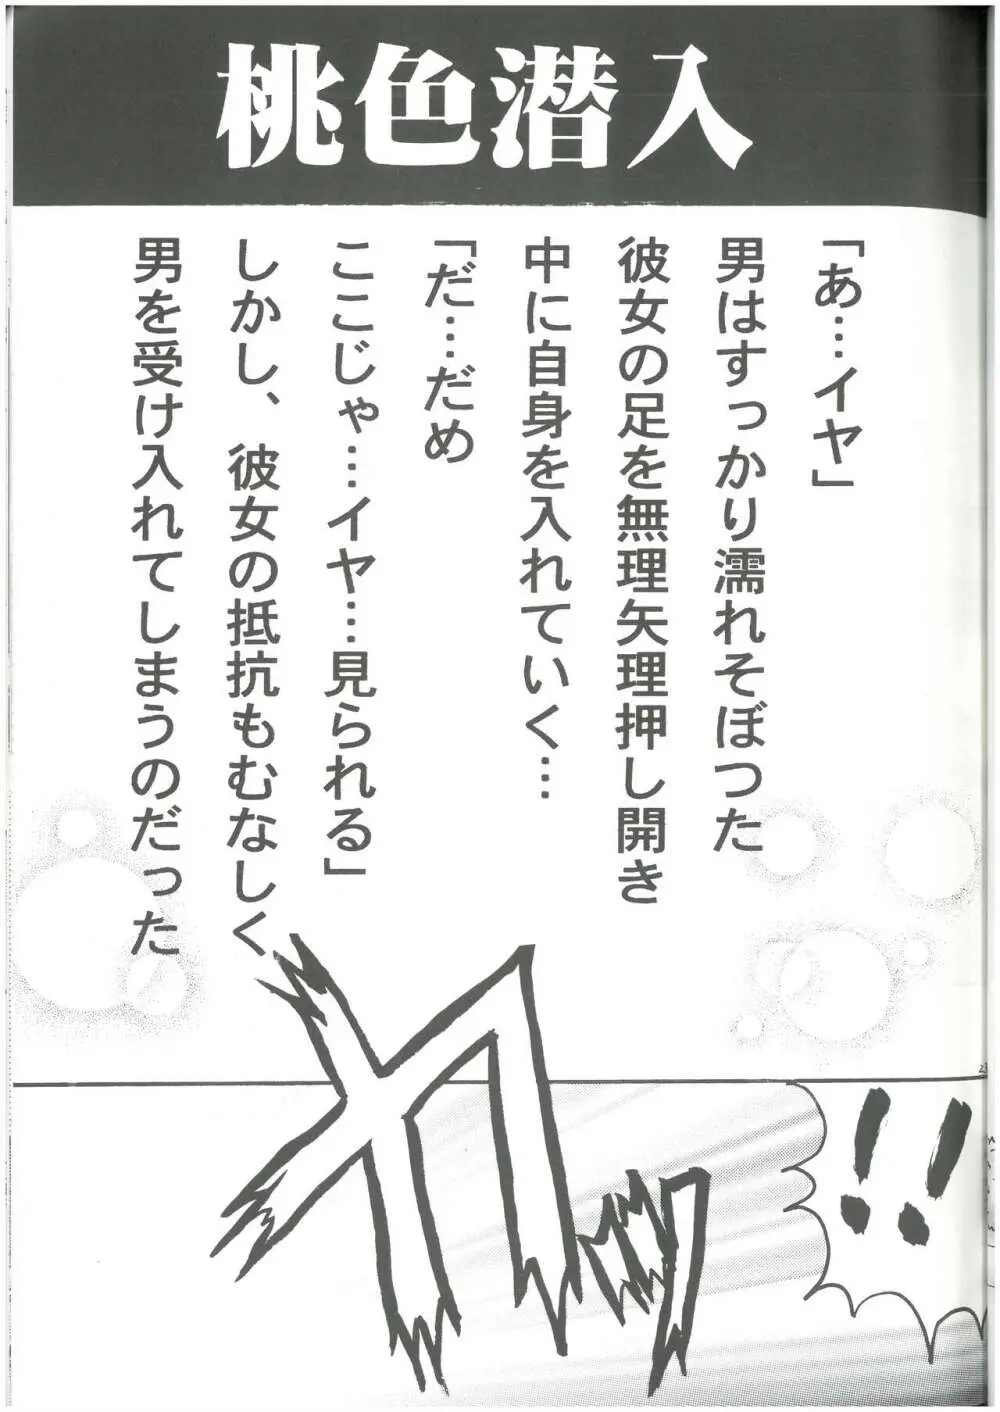 桃色潜入
「あ…イヤ」
男はすっかり濡れそぼつた
彼女の足を無理矢理押し開き
中に自身を入れていく…
「だ…だめ
ここじゃ…イヤ…見られる」
しかし、彼女の抵抗もむなしく
男を受け入れてしまうのだった
!!
カッ